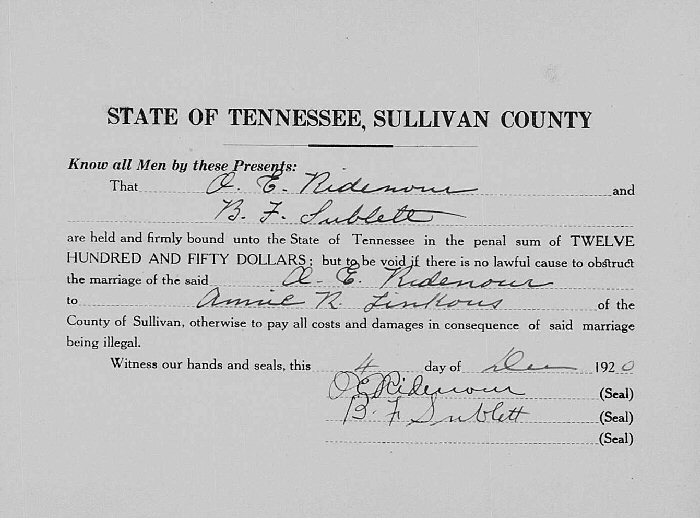 STATE OF TENNESSEE, SULLIVAN COUNTY
Know all Men by these Presents:
That O. E. Ridenour and
B. F. Sublett
are held and firmly bound unto the State of Tennessee in the penal sum of TWELVE
HUNDRED AND FIFTY DOLLARS; but to be void if there is no lawful cause to obstruct
the marriage of the said O. E. Ridenour
to Annie R. Linkous of the
County of Sullivan, otherwise to pay all costs and damages in consequence of said marriage
being illegal.
Witness our hands and seals, this 4 day of Dec 1920
O E Ridenour (Seal)
B. F Sublett (Seal)
(Seal)